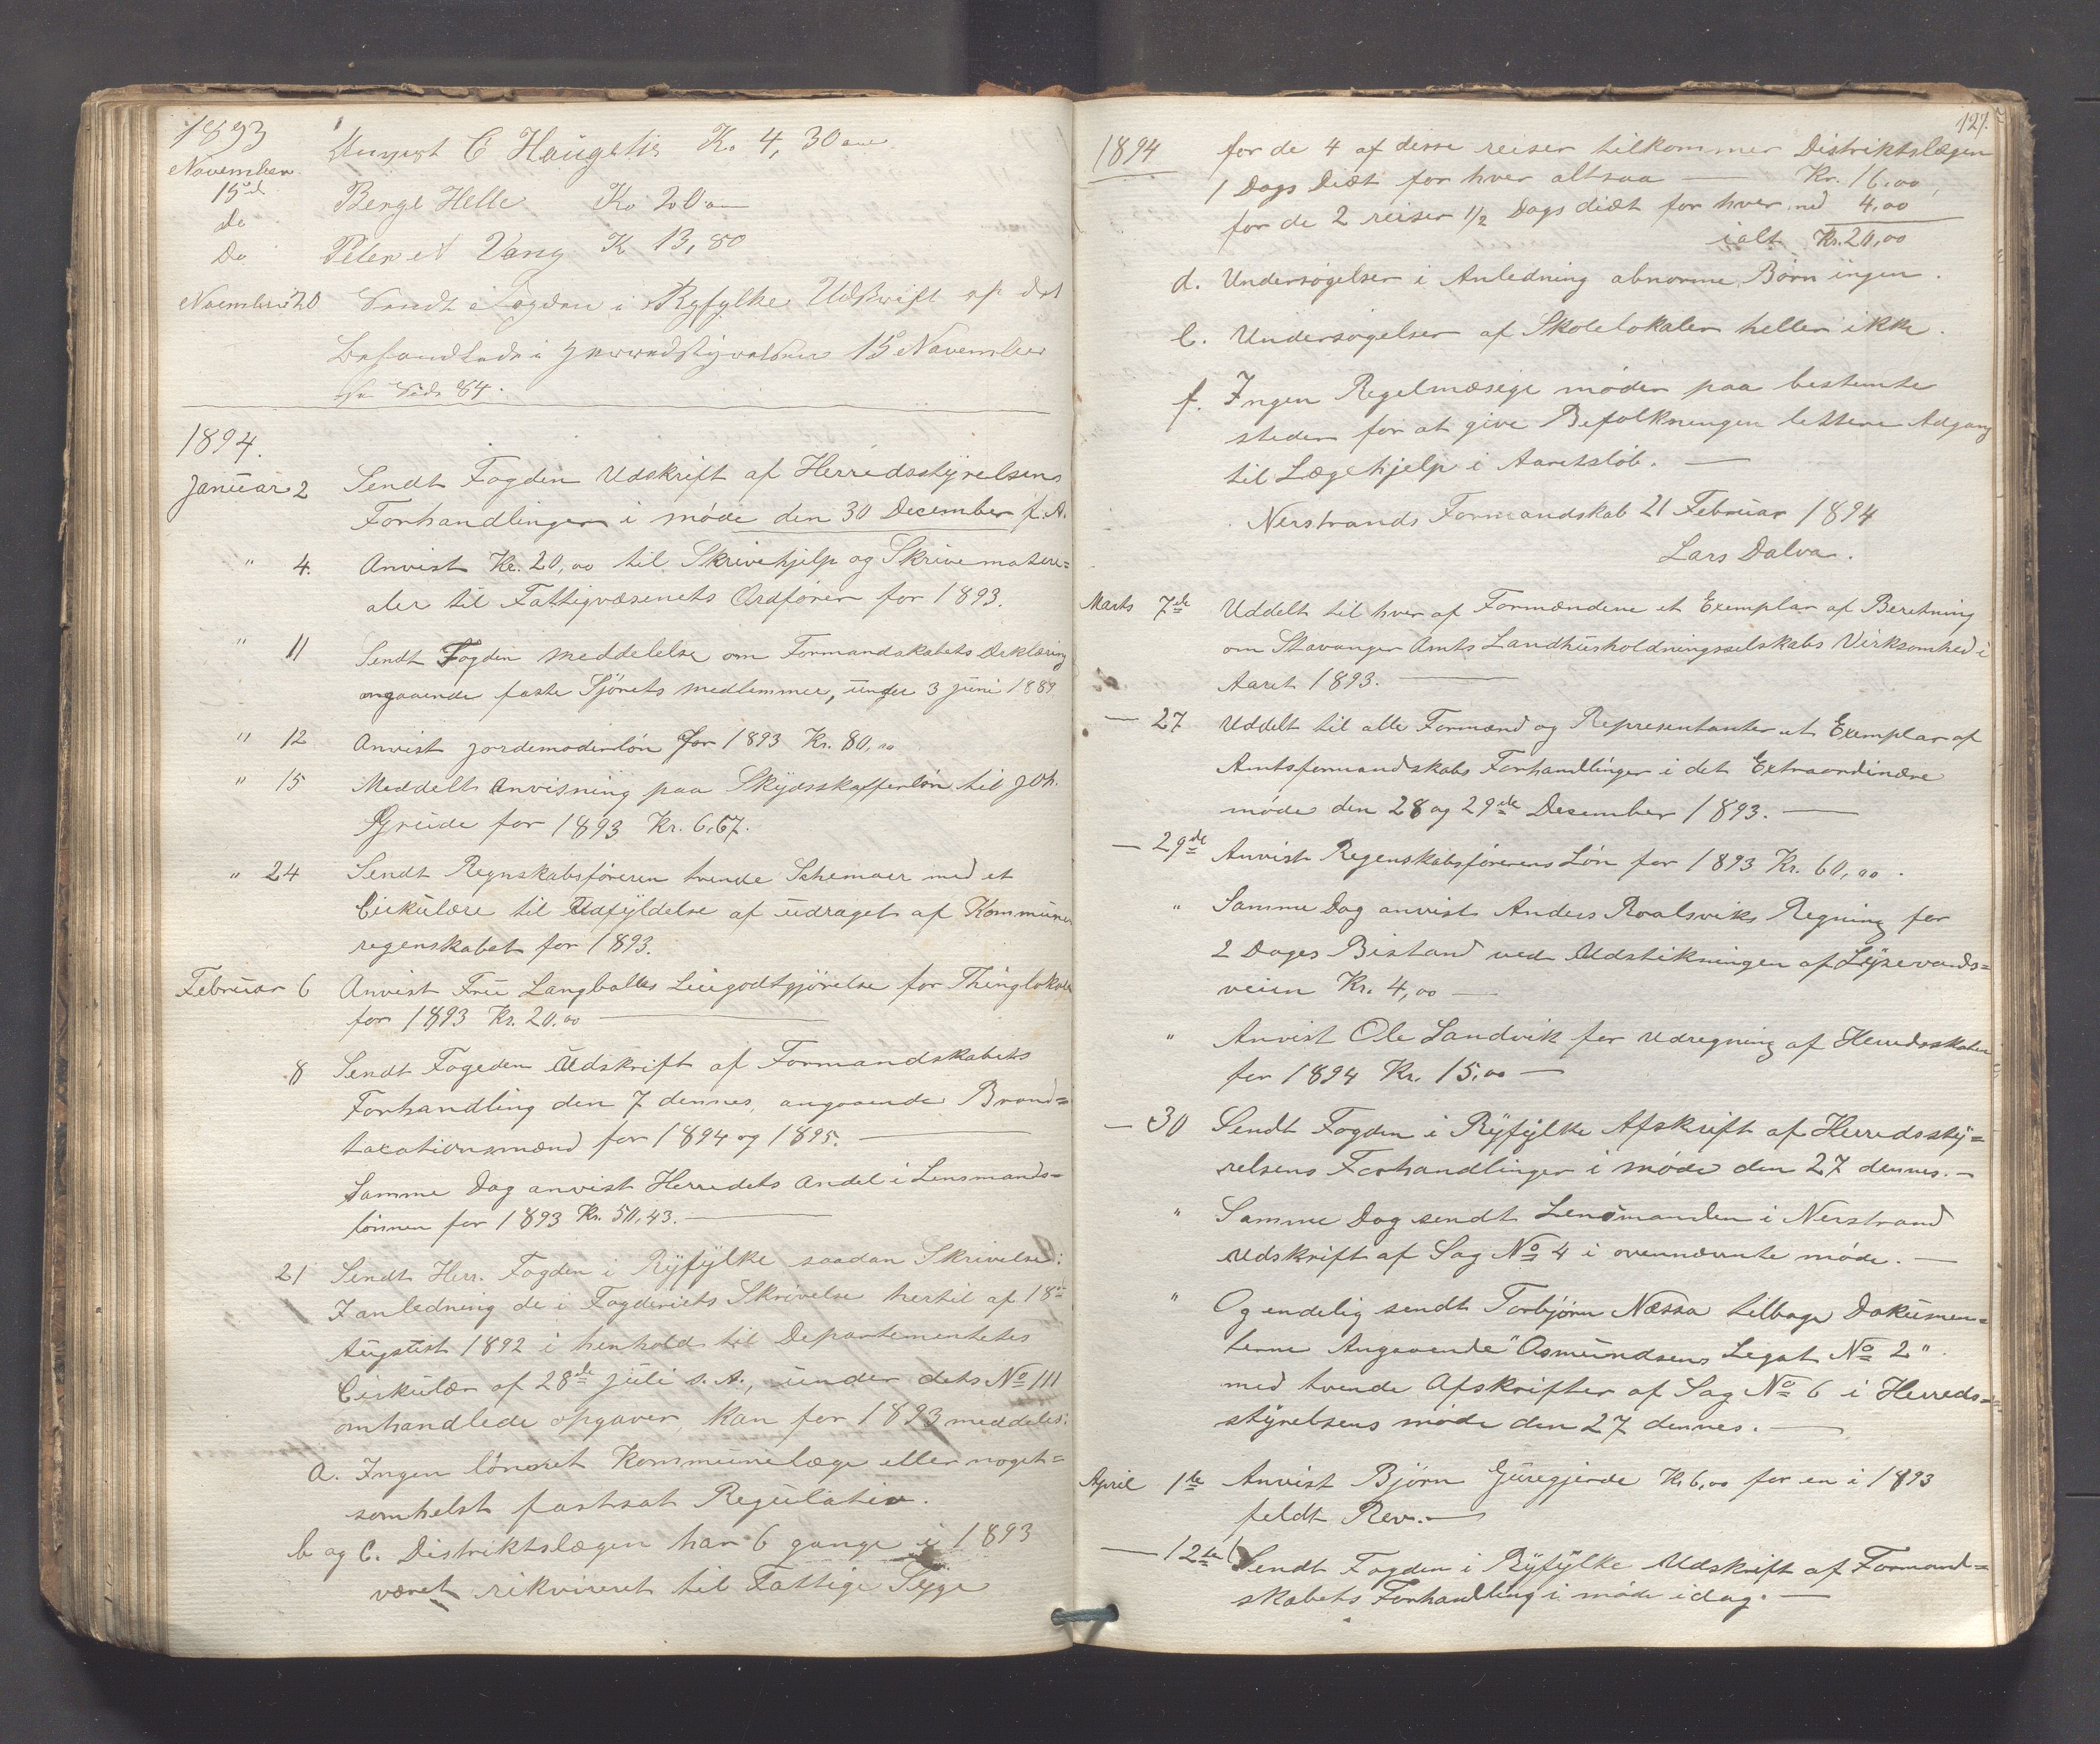 1893
November
15de August E Haugetis K. 4, 30 øre
do Berge Helle Kr 20 øre
Do Peter N Vang K 13,80
November 20 Sendt Fogden i Ryfylke Udskrift af det
behandlede i Herredstyrelsen 15 November
Side 84.
1894.
Januar 2 Sendt Fogden Udskrift af Herredsstyrelsens
Forhandlinger i møde den 30 December f. A.
" 4. Anvist Kr. 20,00 til Skrivehjelp og Skrivematere=
aler til Fattigvæsenets Ordfører for 1893.
" 11 Sendt Fogden meddelelse om Formandskabets Deklæring
angaaende faste medlemmer, under 3 juni 1889
" 12 Anvist jordemoderløn for 1893 Kr. 80,00
" 15 Meddelt Anvisning paa Skydsskafferløn til Joh.
Grude for 1893 Kr. 6,67.
" 24 Sendt Regnskabsføreren tvende Schemaer med et
Cirkulære til Udfyldelse af udraget af Kommune
regenskabet for 1893.
Februar 6 Anvist Fru Langballes Leiegodtgjørelse for Thinglokale
for 1893 Kr. 20.00
8 Sendt Fogeden Udskrift af Formandskabets
Forhandling den 7 dennes, angaaende Brand=
taxationsmænd for 1894 og 1895.
Samme Dag anvist Herredets andel i Lensmands=
lønnen for 1893 Kr. 50,43.
21 Sendt Herr. Fogden i Ryfylke saadan Skrivelse:
I anledning de i Fogderiets Skrivelse hertil af 18de
August 1892 i henhold til Departementets
Cirkulær af 28de juli s. A., under dets No 111
omhandlede opgaver, kan for 1893 meddeles:
a. Ingen lønnet Kommunelæge eller noget=
somhelst fastsat Regulativ.
b og c. Distriktslægen har 6 gange i 1893
været rikvireret til Fattige Syge
127.
1894 for de 4 af disse reiser tilkommer Distriktslægen
1 Dags Diæt for hver altsaa — Kr. 16.00
for de 2 reiser 1/2 Dags diæt for hver med 4,00
ialt Kr. 20,00
d. Undersøgelser i Anledning abnorme Børn ingen.
e. Undersøgelser af Skolelokaler heller ikke.
f. Ingen Regelmæsige møder paa bestemte
steder for at give Befolkningen lettere Adgang
til Lægehjelp i Aaretsløb. —
Nerstrands Formandskab 21 Februar 1894
Lars Dalva.
Marts 7de Uddelt til hver af Formændene et Exemplar af Beretning
om Stavanger Amts Landhusholdningsselskabs Virksomhed i
Aaret 1893. —
— 27 Uddelt til alle Formænd og Representanter et Exemplar af
Amtsformandskabs Forhandlinger i det Extraordinære
møde den 28 og 29de Desember 1893. —
— 29de Anvist Regenskabsførerens Løn for 1893 Kr. 60,00.
" Samme Dag anvist Anders Roalsviks Regning for
2 Dages Bistand ved Udstikningen af Lysevands=
veien Kr. 4,00 —
" Anvist Ole Sandvik for udregning af Herredsskatten
for 1894 Kr. 15,00 —
— 30 Sendt Fogden i Ryfylke Afskrift af Herredssty=
relsens Forhandlinger i møde den 27 dennes. —
" Samme Dag sendt Lensmanden i Nerstrand
Udskrift af Sag No 4 i ovennævnte møde. —
" Og endelig sendt Torbjørn Næssa tilbage Dokumen=
terne Angaaende "Asmundsens Legat No 2".
med tvende Afskrifter af Sag No 6 i Herreds=
styrelsens møde den 27 dennes. —
April 1te Anvist Bjørn Guregjerde Kr 6,00 for en i 1893
feldt Rev. —
— 12te Sendt Fogden i Ryfylke Udskrift af Formand=
skabets Forhandling i møde idag. —